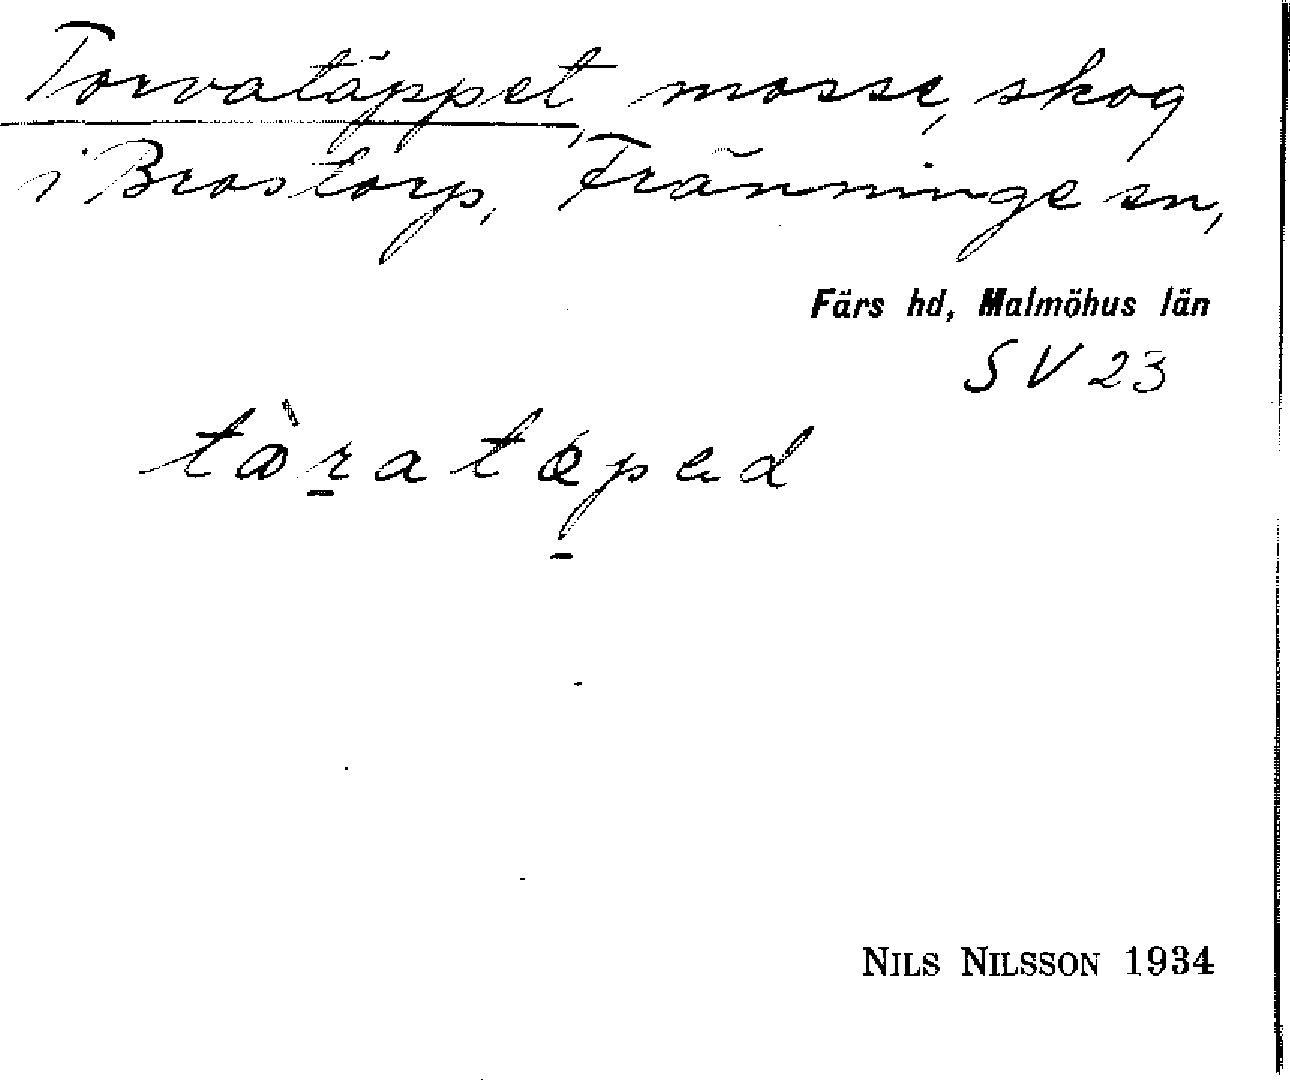 Torvatäppet, mosse, skog
i Brostorp, Fränninge sn,
Färs hd, Malmöhus län
SV 23
NILS NILSSON 1934